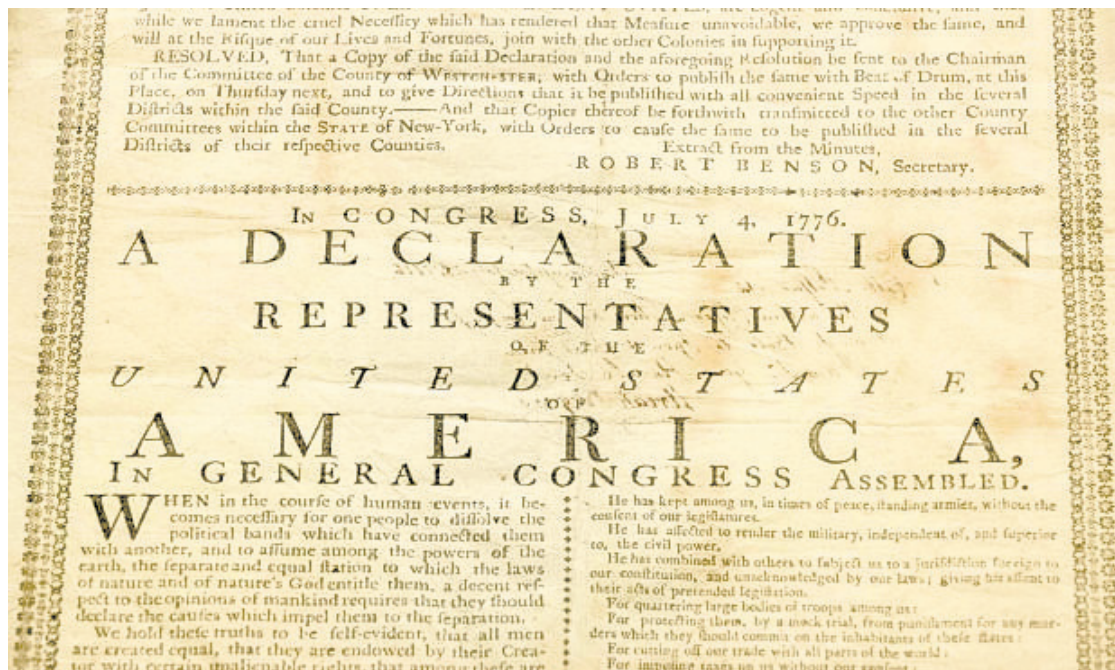 while we lament the cruel Neceſſity which has rendered that Meaſure unavoidable, we approve the ſame, and
will at the Riſque of our Lives and Fortunes, join with the other Colonies in ſupporting it.
RESOLVED, That a Copy of the ſaid Declaration and the aforegoing Reſolution be ſent to the Chairman
of the Committee of the County of WESTCHESTER, with Orders to publiſh the ſame with Beat of Drum, at this
Place, on Thurſday next, and to give Directions that it be publiſhed with all convenient Speed in the ſeveral
Diſtricts within the ſaid County.——And that Copies thereof be forthwith tranſmitted to the other County
Committees within the STATE of New-York, with Orders to cauſe the ſame to be publiſhed in the ſeveral
Diſtricts of their reſpective Counties.
Extract from the Minutes,
ROBERT BENSON, Secretary.
IN CONGRESS, JULY 4, 1776.
A DECLARATION
BY THE
REPRESENTATIVES
OF THE
UNITED STATES
OF
AMERICA,
IN GENERAL CONGRESS ASSEMBLED.
WHEN in the courſe of human events, it be-
comes neceſſary for one people to diſſolve the
political bands which have connected them
with another, and to aſſume among the powers of the
earth, the ſeparate and equal ſtation to which the laws
of nature and of nature's God entitle them, a decent reſ-
pect to the opinions of mankind requires that they ſhould
declare the cauſes which impel them to the ſeparation.
We hold theſe truths to be ſelf-evident, that all men
are created equal, that they are endowed by their Crea-
tor with certain unalienable rights, that among theſe are
He has kept among us, in times of peace, ſtanding armies, without the
conſent of our legiſlatures.
He has affected to render the military, independent of, and ſuperior
to, the civil power.
He has combined with others to ſubject us to a juriſdiction foreign to
our conſtitution, and unacknowledged by our laws; giving his aſſent to
their acts of pretended legiſlation.
For quartering large bodies of troops among us:
For protecting them, by a mock trial, from puniſhment for any mur-
ders which they ſhould commit on the inhabitants of theſe ſtates:
For cutting off our trade with all parts of the world:
For impoſing taxes on us without our conſent: